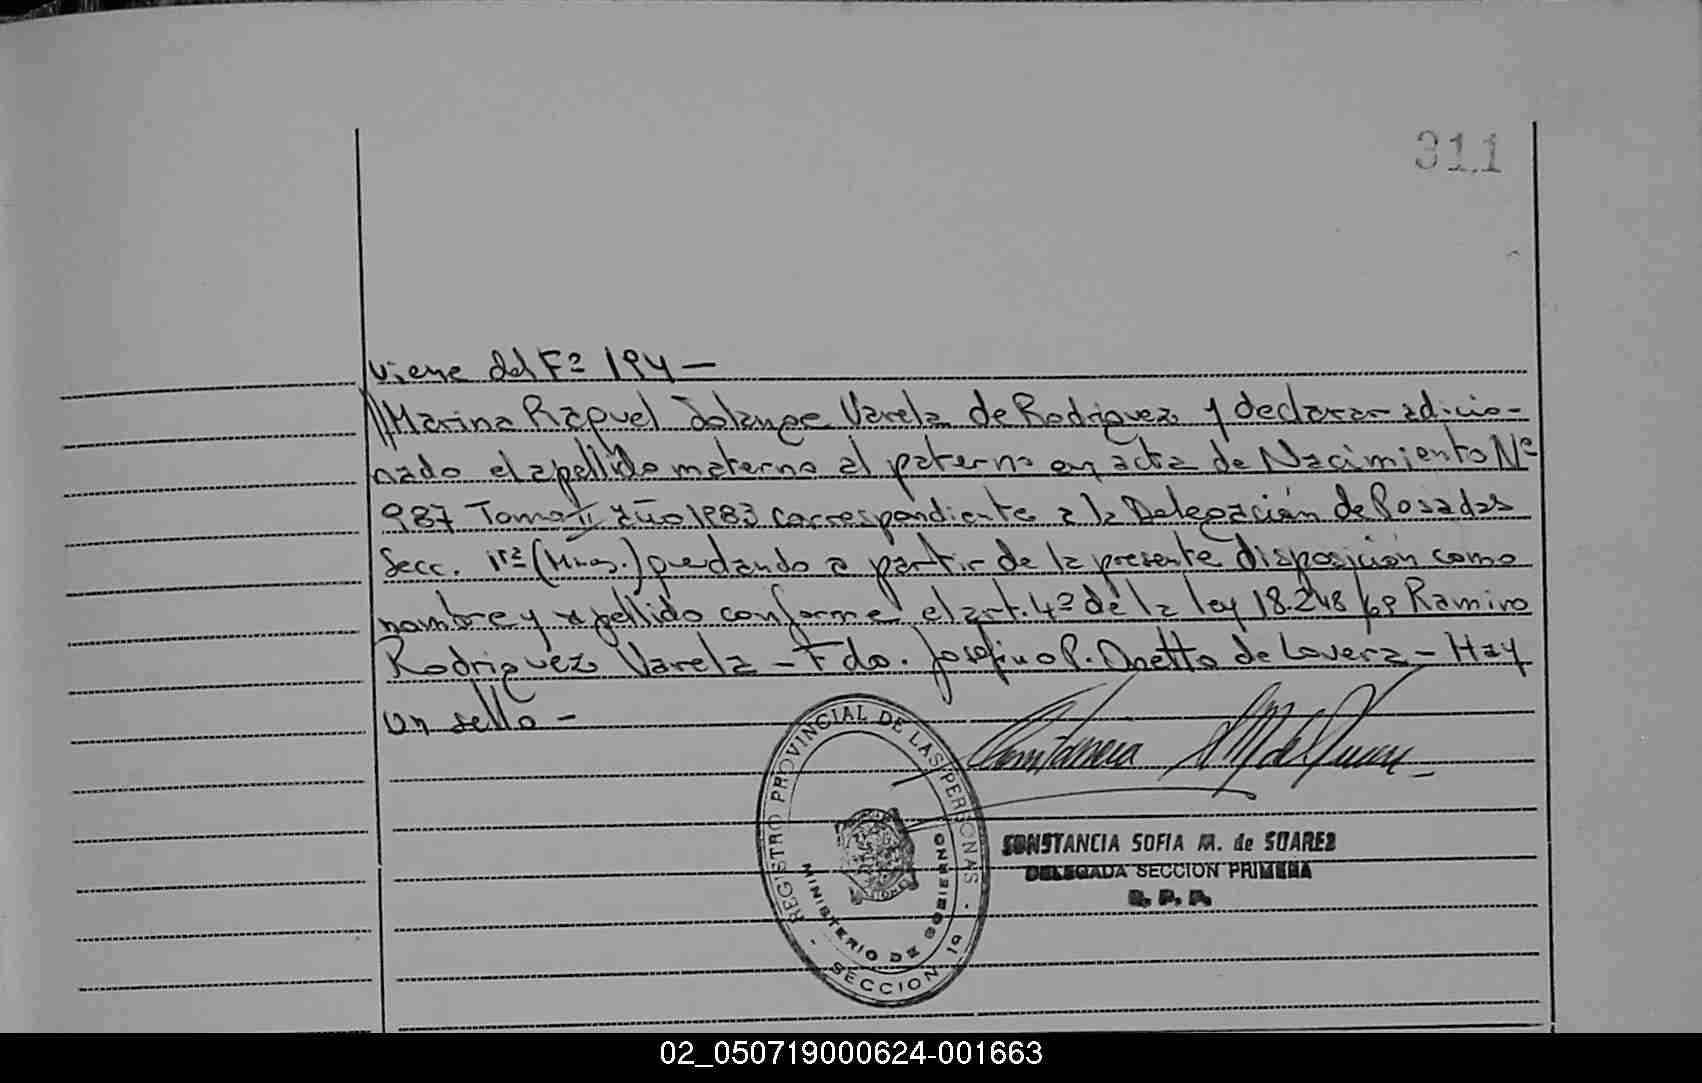 311
viene del Fº 194 —
//Marina Raquel Solange Varela de Rodriguez y declarar adicio-
nado el apellido materno al paterno en acta de Nacimiento Nº
987 Tomo II año 1983 correspondiente a la Delegación de Posadas
Secc. 1ra (Mnes.) quedando a partir de la presente disposición como
nombre y apellido conforme el art. 4º de la ley 18.248/69 Ramiro
Rodriguez Varela — Fdo. Josefina P. Onetto de Lovera — Hay
un sello —
REGISTRO PROVINCIAL DE LAS PERSONAS
MINISTERIO DE GOBIERNO
- SECCION 1a -
CONSTANCIA SOFIA M. de SUAREZ
DELEGADA SECCION PRIMERA
R. P. P.
02_050719000624-001663